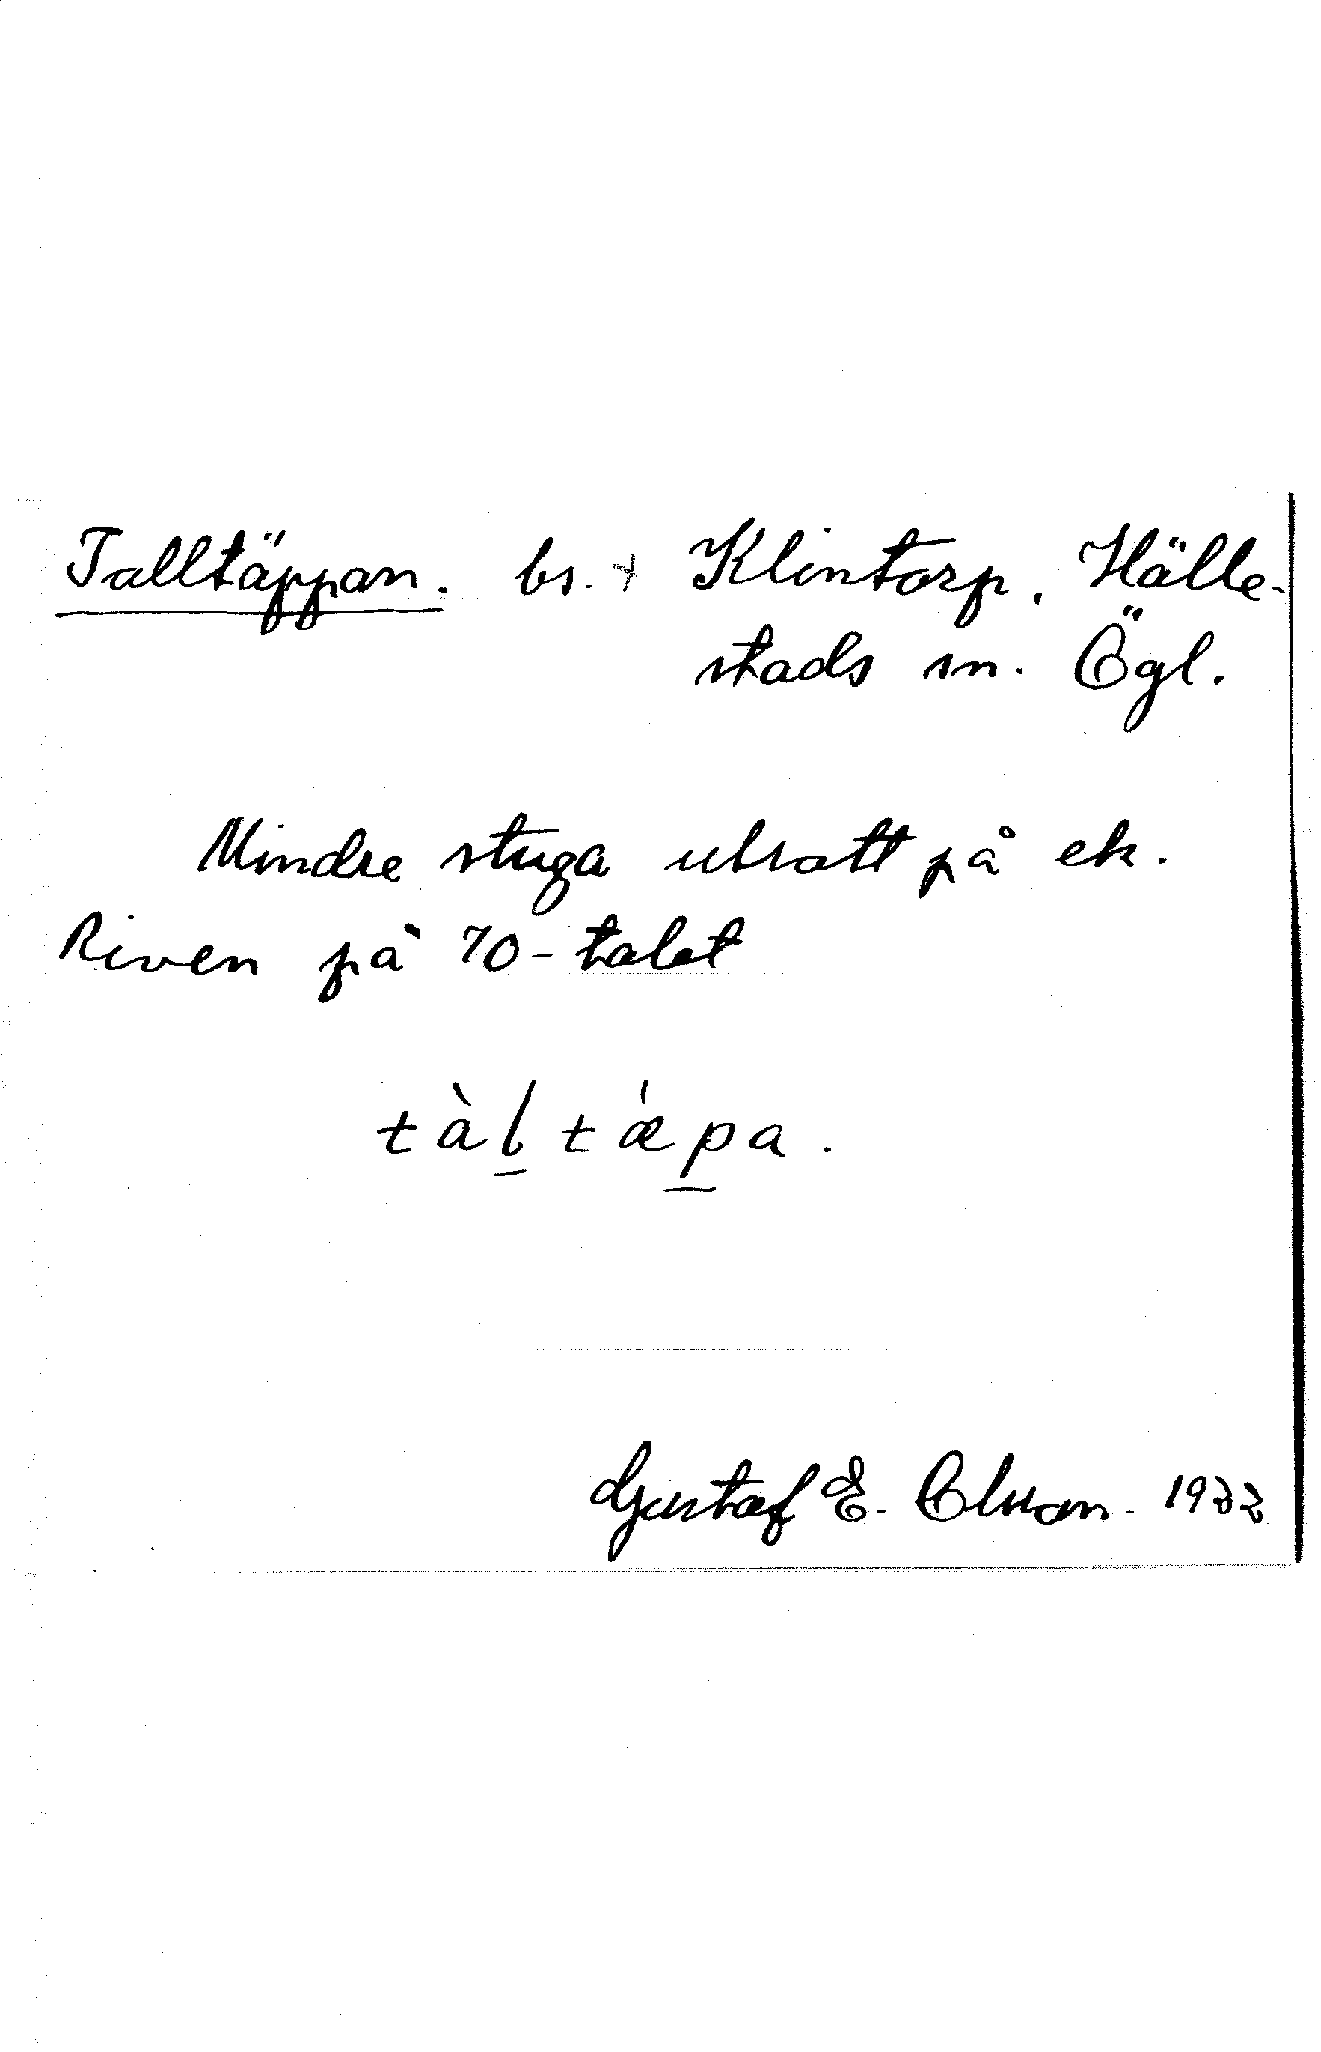 Talltäppan. bs. + Klintorp. Hälle-
stads sn. Ögl.
Mindre stuga utsatt på ek.
Riven på 70-talet
tàl̲ tǽp̲a.
Gustaf E. 19